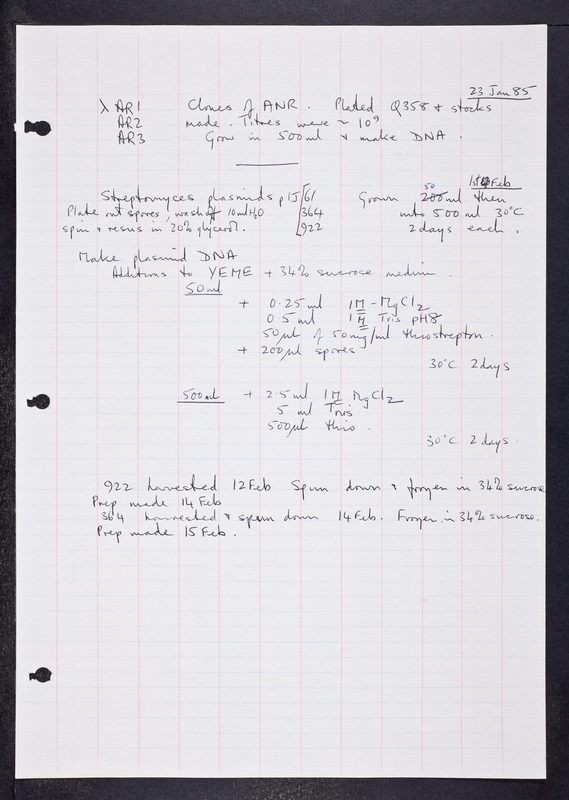 23 Jan 85
λ AR1 Clones of ANR. Plated Q358 & stocks
AR2 made. Titres were ~ 10⁹
AR3 Grow in 500ml & make DNA.
1st Feb
Streptomyces plasmids pIJ 61 Grown 50 200ml then
Plate out spores, wash off 10ml H2O 364 into 500 ml 30°C
spin & resus in 20% glycerol. 922 2 days each.
Make plasmid DNA
Additions to YEME + 34% sucrose medium.
50ml
+ 0.25ml 1M - MgCl2
0.5ml 1M Tris pH8
50µl of 50mg/ml thiostrepton.
+ 200µl spores
30°C 2days
500ml + 2.5ml 1M MgCl2
5 ml Tris
500µl thio.
30°C 2 days.
922 harvested 12 Feb Spun down & frozen in 34% sucrose
Prep made 14 Feb
364 harvested & spun down 14 Feb. Frozen in 34% sucrose.
Prep made 15 Feb.